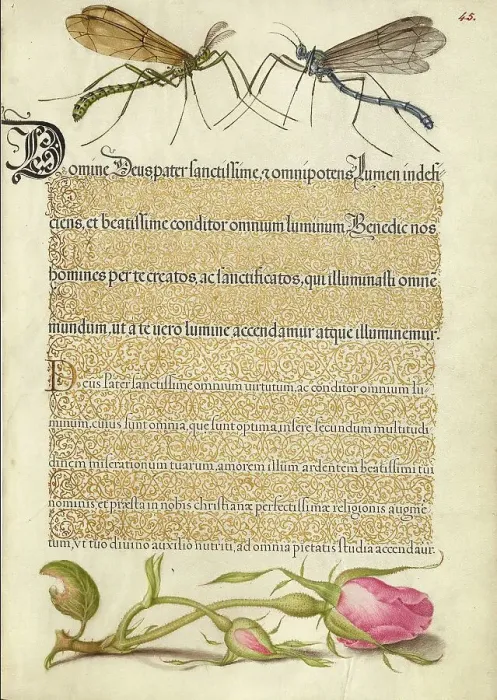 45.
Domine Deus pater sanctissime, ⁊ omnipotens Lumen indefi-
ciens, et beatissime conditor omnium luminum, Benedic nos
homines per te creatos, ac sanctificatos, qui illuminasti omnē
mundum, ut a te uero lumine accendamur atque illuminemur.
Deus Pater sanctissime omnium uirtutum, ac conditor omnium lu-
minum, cuius sunt omnia, que sunt optima, insere secundum multitudi
dinem miserationum tuarum, amorem illum ardentem beatissimi tui
nominis, et præsta in nobis christianæ perfectissimæ religionis augmē
tum, vt tuo diuino auxilio nutriti, ad omnia pietatis studia accendaur.